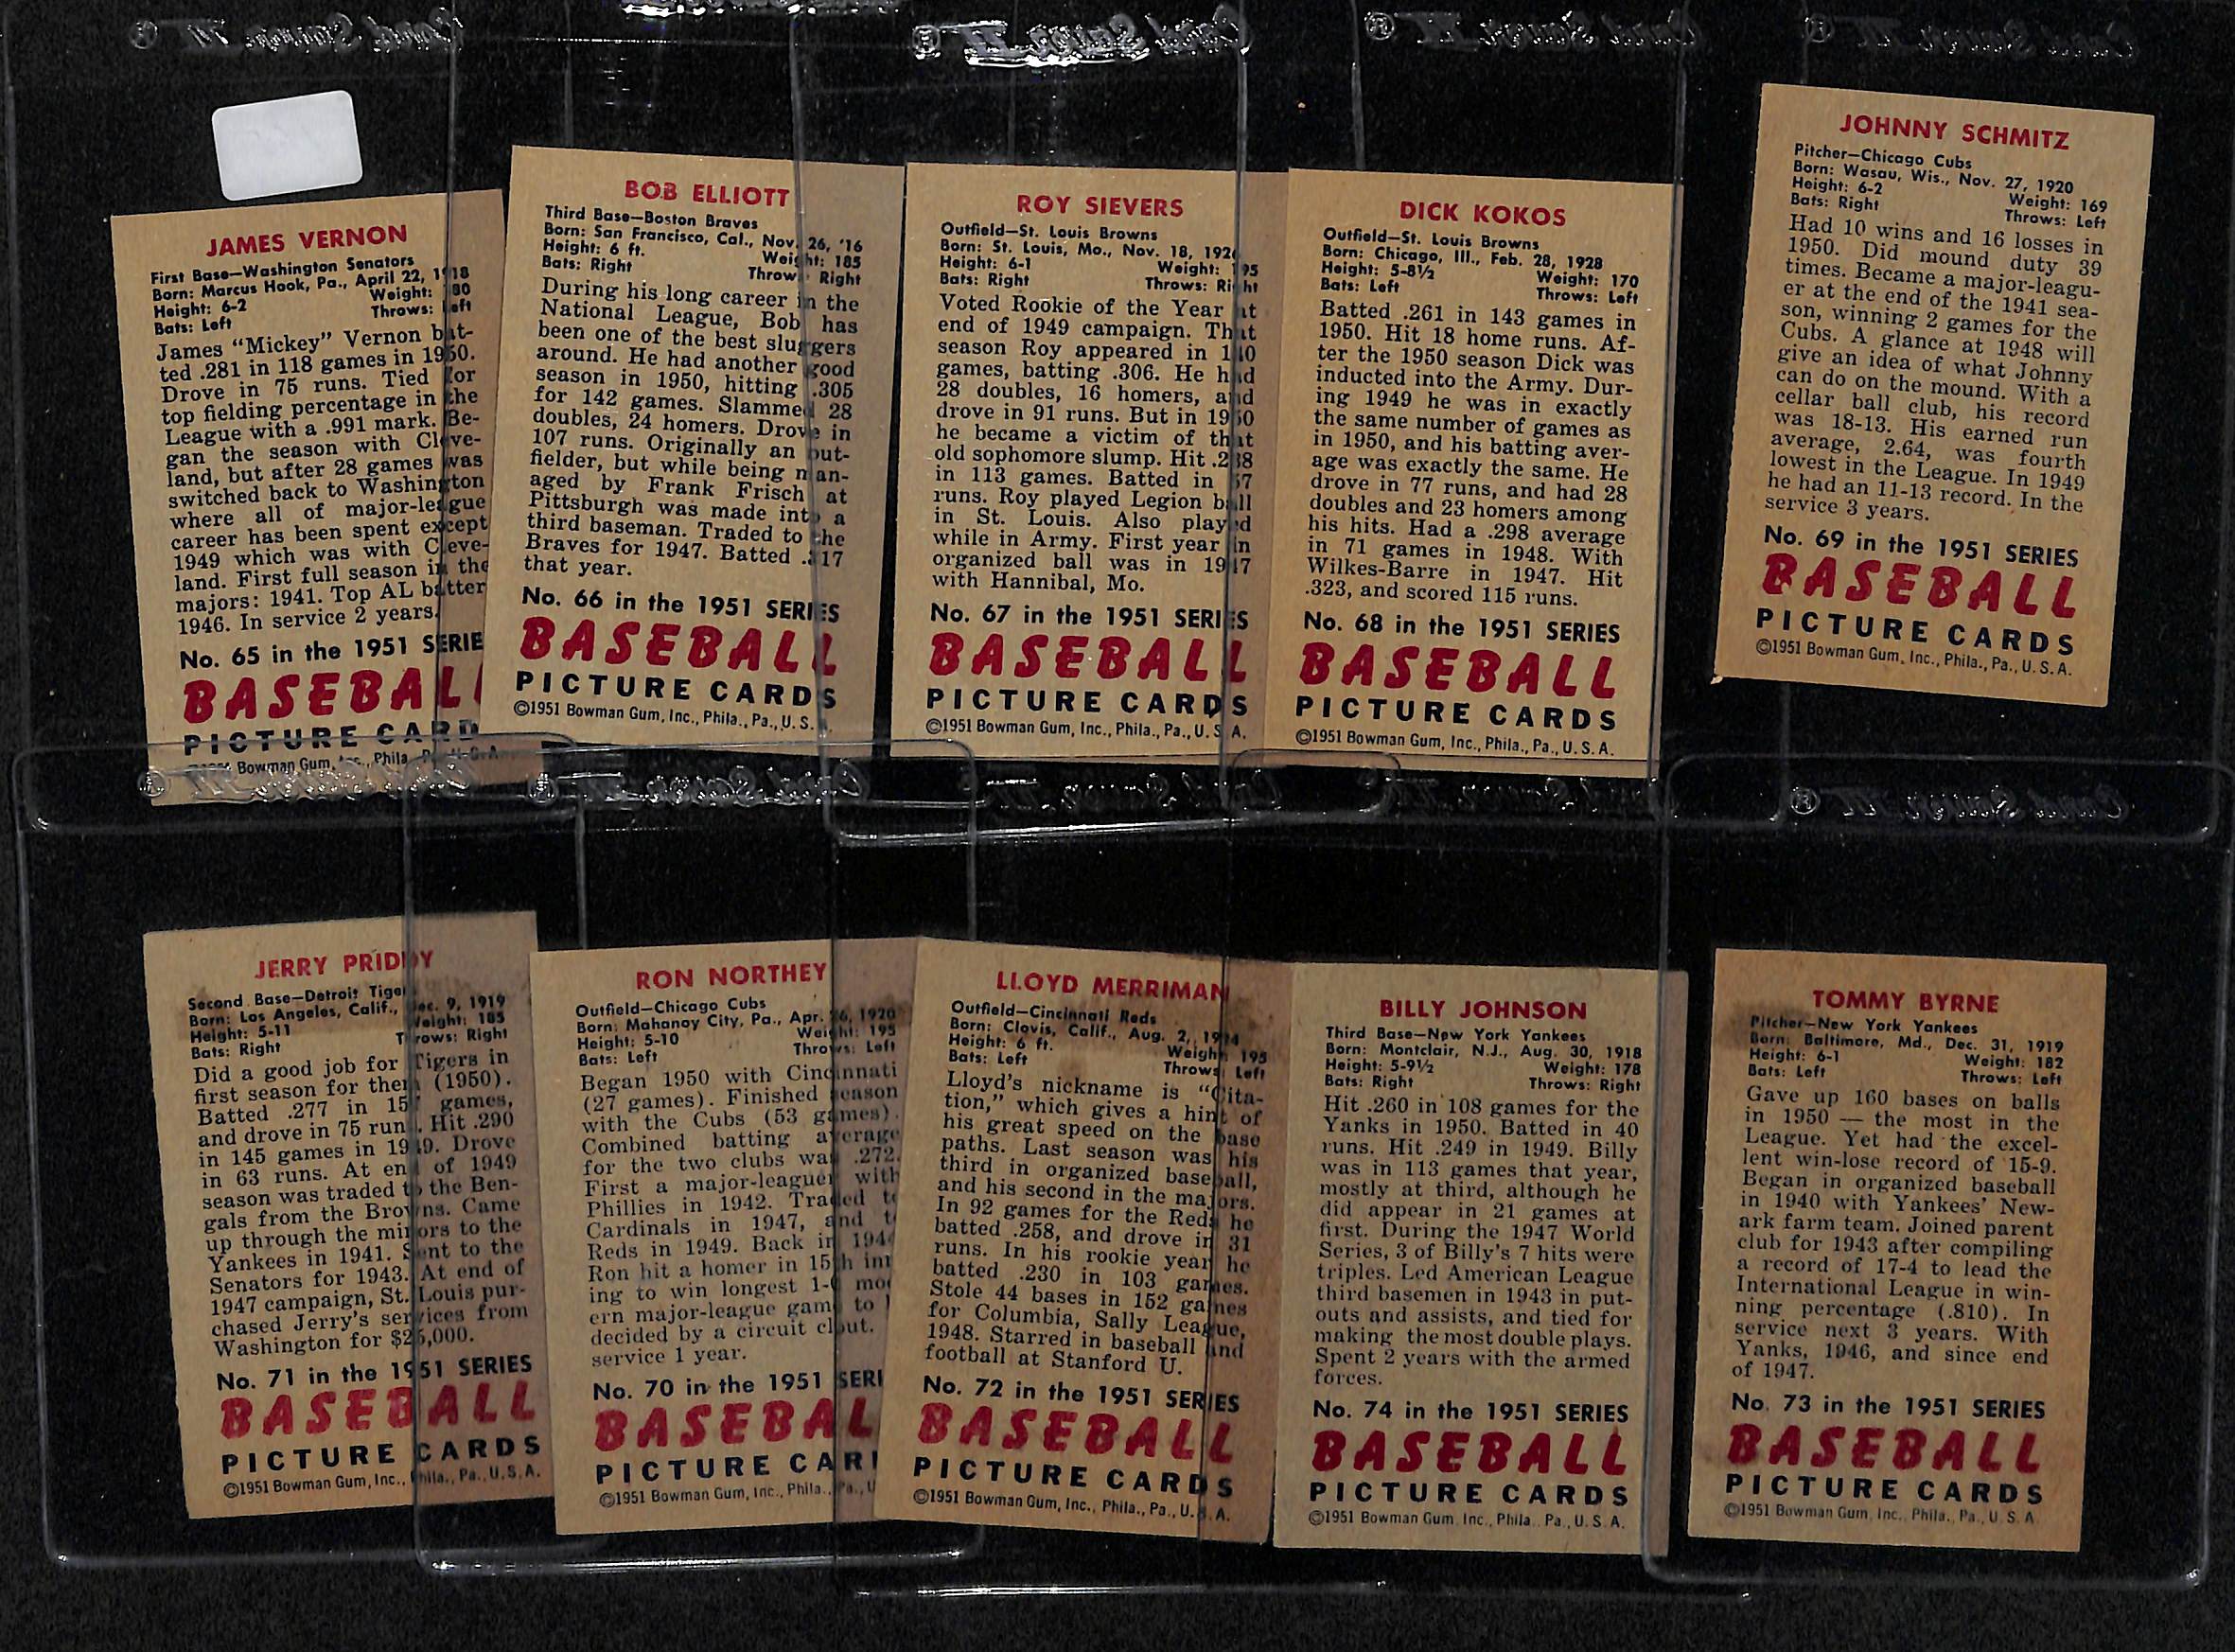 Card Saver II ®
Card Saver II ®
Card Saver II ®
Card Saver II ®
JAMES VERNON
First Base—Washington Senators
Born: Marcus Hook, Pa., April 22, 1918
Height: 6-2 Weight: 180
Bats: Left Throws: Left
James “Mickey” Vernon bat-
ted .281 in 118 games in 1950.
Drove in 75 runs. Tied for
top fielding percentage in the
League with a .991 mark. Be-
gan the season with Cleve-
land, but after 28 games was
switched back to Washington
where all of major-league
career has been spent except
1949 which was with Cleve-
land. First full season in the
majors: 1941. Top AL batter
1946. In service 2 years.
No. 65 in the 1951 SERIE
BASEBALL
PICTURE CARD
Bowman Gum, Inc., Phila., Pa., U.S.A.
BOB ELLIOTT
Third Base—Boston Braves
Born: San Francisco, Cal., Nov. 26, '16
Height: 6 ft. Weight: 185
Bats: Right Throws: Right
During his long career in the
National League, Bob has
been one of the best sluggers
around. He had another good
season in 1950, hitting .305
for 142 games. Slammed 28
doubles, 24 homers. Drove in
107 runs. Originally an out-
fielder, but while being man-
aged by Frank Frisch at
Pittsburgh was made into a
third baseman. Traded to the
Braves for 1947. Batted .317
that year.
No. 66 in the 1951 SERIES
BASEBALL
PICTURE CARDS
©1951 Bowman Gum, Inc., Phila., Pa., U.S.A.
ROY SIEVERS
Outfield—St. Louis Browns
Born: St. Louis, Mo., Nov. 18, 1926
Height: 6-1 Weight: 195
Bats: Right Throws: Right
Voted Rookie of the Year at
end of 1949 campaign. That
season Roy appeared in 140
games, batting .306. He had
28 doubles, 16 homers, and
drove in 91 runs. But in 1950
he became a victim of that
old sophomore slump. Hit .238
in 113 games. Batted in 57
runs. Roy played Legion ball
in St. Louis. Also played
while in Army. First year in
organized ball was in 1947
with Hannibal, Mo.
No. 67 in the 1951 SERIES
BASEBALL
PICTURE CARDS
©1951 Bowman Gum, Inc., Phila., Pa., U.S.A.
DICK KOKOS
Outfield—St. Louis Browns
Born: Chicago, Ill., Feb. 28, 1928
Height: 5-8½ Weight: 170
Bats: Left Throws: Left
Batted .261 in 143 games in
1950. Hit 18 home runs. Af-
ter the 1950 season Dick was
inducted into the Army. Dur-
ing 1949 he was in exactly
the same number of games as
in 1950, and his batting aver-
age was exactly the same. He
drove in 77 runs, and had 28
doubles and 23 homers among
his hits. Had a .298 average
in 71 games in 1948. With
Wilkes-Barre in 1947. Hit
.323, and scored 115 runs.
No. 68 in the 1951 SERIES
BASEBALL
PICTURE CARDS
©1951 Bowman Gum, Inc., Phila., Pa., U.S.A.
JOHNNY SCHMITZ
Pitcher—Chicago Cubs
Born: Wasau, Wis., Nov. 27, 1920
Height: 6-2 Weight: 169
Bats: Right Throws: Left
Had 10 wins and 16 losses in
1950. Did mound duty 39
times. Became a major-leagu-
er at the end of the 1941 sea-
son, winning 2 games for the
Cubs. A glance at 1948 will
give an idea of what Johnny
can do on the mound. With a
cellar ball club, his record
was 18-13. His earned run
average, 2.64, was fourth
lowest in the League. In 1949
he had an 11-13 record. In the
service 3 years.
No. 69 in the 1951 SERIES
BASEBALL
PICTURE CARDS
©1951 Bowman Gum, Inc., Phila., Pa., U.S.A.
Card Saver II ®
Card Saver II ®
Card Saver II
Card Saver II
Card Saver II ®
JERRY PRIDDY
Second Base—Detroit Tigers
Born: Los Angeles, Calif., Dec. 9, 1919
Height: 5-11 Weight: 185
Bats: Right Throws: Right
Did a good job for Tigers in
first season for them (1950).
Batted .277 in 157 games,
and drove in 75 runs. Hit .290
in 145 games in 1949. Drove
in 63 runs. At end of 1949
season was traded to the Ben-
gals from the Browns. Came
up through the minors to the
Yankees in 1941. Sent to the
Senators for 1943. At end of
1947 campaign, St. Louis pur-
chased Jerry's services from
Washington for $25,000.
No. 71 in the 1951 SERIES
BASEBALL
PICTURE CARDS
©1951 Bowman Gum, Inc., Phila., Pa., U.S.A.
RON NORTHEY
Outfield—Chicago Cubs
Born: Mahanoy City, Pa., Apr. 26, 1920
Height: 5-10 Weight: 195
Bats: Left Throws: Left
Began 1950 with Cincinnati
(27 games). Finished season
with the Cubs (53 games).
Combined batting average
for the two clubs was .272.
First a major-leaguer with
Phillies in 1942. Traded to
Cardinals in 1947, and to
Reds in 1949. Back in 194
Ron hit a homer in 15th inn
ing to win longest 1-0 mod
ern major-league game to b
decided by a circuit clout.
service 1 year.
No. 70 in the 1951 SERI
BASEBAL
PICTURE CAR
©1951 Bowman Gum, Inc., Phila., Pa., U
LLOYD MERRIMAN
Outfield—Cincinnati Reds
Born: Clovis, Calif., Aug. 2, 1924
Height: 6 ft. Weight: 195
Bats: Left Throws: Left
Lloyd's nickname is “Cita-
tion,” which gives a hint of
his great speed on the base
paths. Last season was his
third in organized baseball,
and his second in the majors.
In 92 games for the Reds he
batted .258, and drove in 31
runs. In his rookie year he
batted .230 in 103 games.
Stole 44 bases in 152 games
for Columbia, Sally League,
1948. Starred in baseball and
football at Stanford U.
No. 72 in the 1951 SERIES
BASEBALL
PICTURE CARDS
©1951 Bowman Gum, Inc., Phila., Pa., U.S.A.
BILLY JOHNSON
Third Base—New York Yankees
Born: Montclair, N.J., Aug. 30, 1918
Height: 5-9½ Weight: 178
Bats: Right Throws: Right
Hit .260 in 108 games for the
Yanks in 1950. Batted in 40
runs. Hit .249 in 1949. Billy
was in 113 games that year,
mostly at third, although he
did appear in 21 games at
first. During the 1947 World
Series, 3 of Billy's 7 hits were
triples. Led American League
third basemen in 1943 in put-
outs and assists, and tied for
making the most double plays.
Spent 2 years with the armed
forces.
No. 74 in the 1951 SERIES
BASEBALL
PICTURE CARDS
©1951 Bowman Gum, Inc., Phila., Pa., U.S.A.
TOMMY BYRNE
Pitcher—New York Yankees
Born: Baltimore, Md., Dec. 31, 1919
Height: 6-1 Weight: 182
Bats: Left Throws: Left
Gave up 160 bases on balls
in 1950 — the most in the
League. Yet had the excel-
lent win-lose record of 15-9.
Began in organized baseball
in 1940 with Yankees' New-
ark farm team. Joined parent
club for 1943 after compiling
a record of 17-4 to lead the
International League in win-
ning percentage (.810). In
service next 3 years. With
Yanks, 1946, and since end
of 1947.
No. 73 in the 1951 SERIES
BASEBALL
PICTURE CARDS
©1951 Bowman Gum, Inc., Phila., Pa., U.S.A.